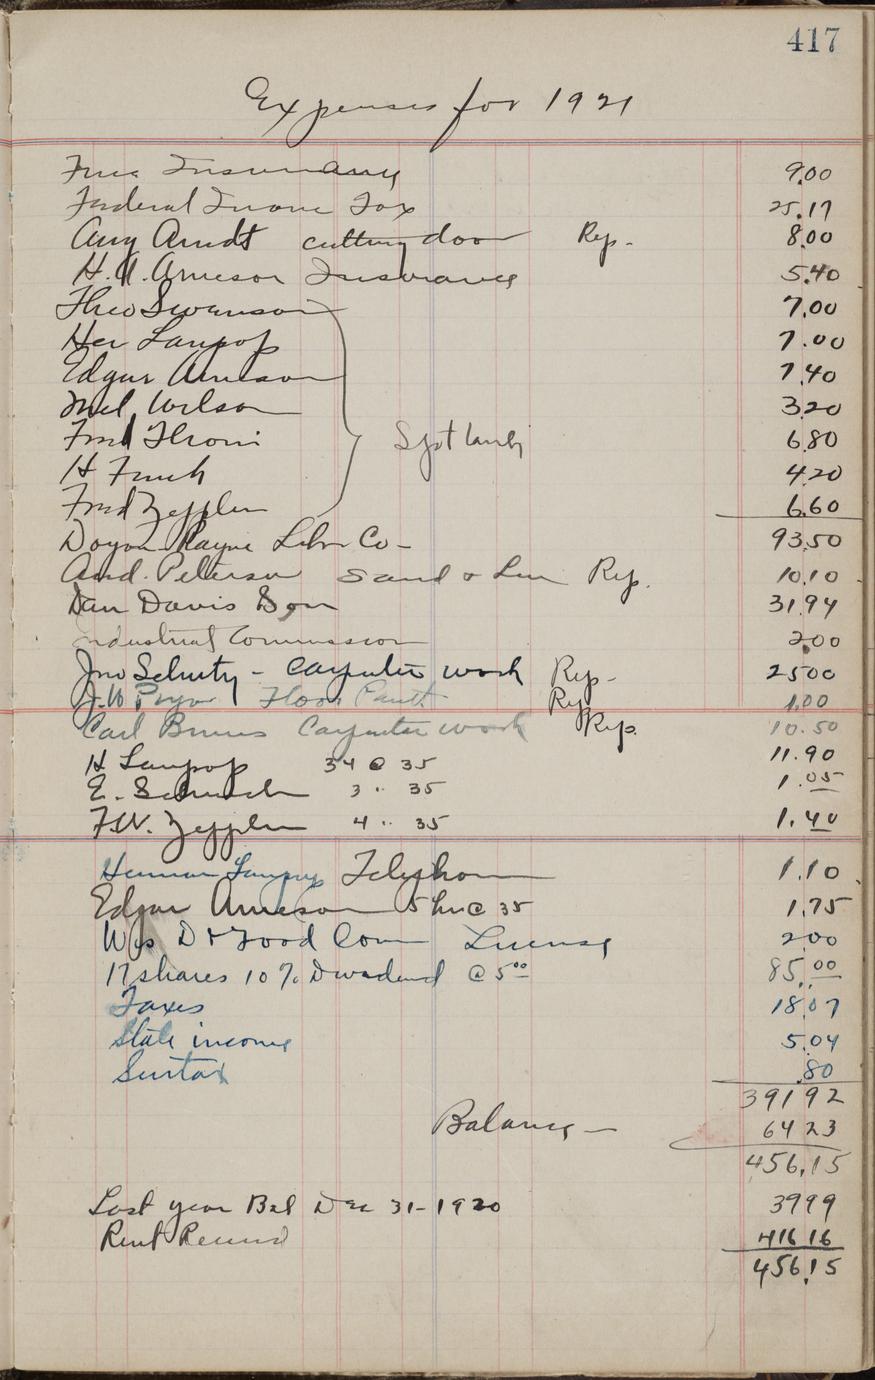 417
Expenses for 1921
Fire Insurance 9.00
Federal Income Tax 25.17
Aug Arndt cutting door Rep. 8.00
H. A. Arneson Insurance 5.40
Theo Swanson 7.00
Her Lanpop 7.00
Edgar Arneson 7.40
Mel Wilson 3.20
Fred Throni 6.80
H Funk 4.20
Fred Zepplin 6.60
Payne Lbr Co - 93.50
And. Peterson Sand & Lim Rep. 10.10
Dan Davis & Son 31.94
Industrial Commission 2.00
Jno Schutz - Carpenter work Rep - 25.00
J.W. Pryor Floor Paint Rep 1.00
Carl Bruns Carpenter work Rep. 10.50
H Lanpop 34 @ 35 11.90
E. 3 " 35 1.05
F.W. Zepplin 4 " 35 1.40
Herman Lanpop Telephone 1.10
Edgar Arneson 5 hrs @ 35 1.75
Wis D & Food Com License 2.00
17 shares 10% Dividend @ 5.00 85.00
Taxes 18.07
State income 5.04
Surtax .80
391 92
Balance - 64 23
456.15
Last year Bal Dec 31 - 1920 39 99
Rent Received 416 16
456.15